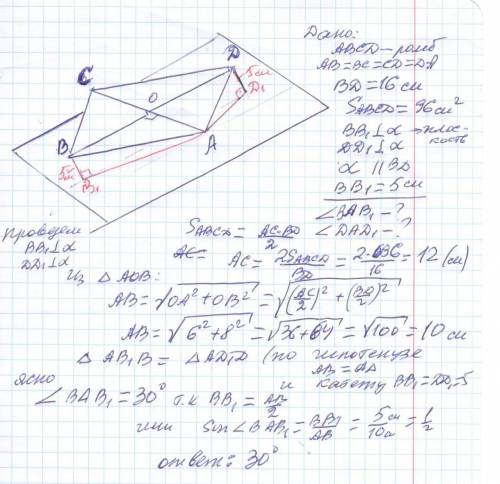 Дано:
ABCD – ромб
AB = BC = CD = DA
BD = 16 см
S ABCD = 96 см²
BB₁ ⊥ α → плоскость
DD₁ ⊥ α
α || BD
BB₁ = 5 см
∠BAB₁ – ?
∠DAD₁ – ?
C
D
5см
D₁
O
B
A
5см
B₁
проведем
BB₁ ⊥ α
DD₁ ⊥ α
S ABCD = AC·BD / 2
AC =
AC = 2S ABCD / BD = 2·96 / 16 = 12 (см)
Из △ AOB:
AB = √(OA² + OB²) = √((AC/2)² + (BD/2)²)
AB = √(6² + 8²) = √(36 + 64) = √100 = 10 см
△ AB₁B = △ AD₁D (по гипотенузе
AB = AD
и катету BB₁ = DD₁ = 5
ясно
∠BAB₁ = 30° т.к BB₁ = AB/2
или Sin ∠BAB₁ = BB₁/AB = 5 см/10 см = 1/2
ответ: 30°